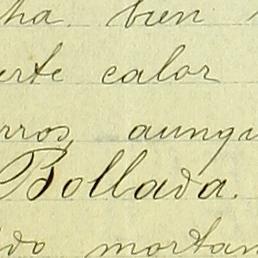 ha. bien
erte calor
rros, aunqu
Bollada.
do mortan